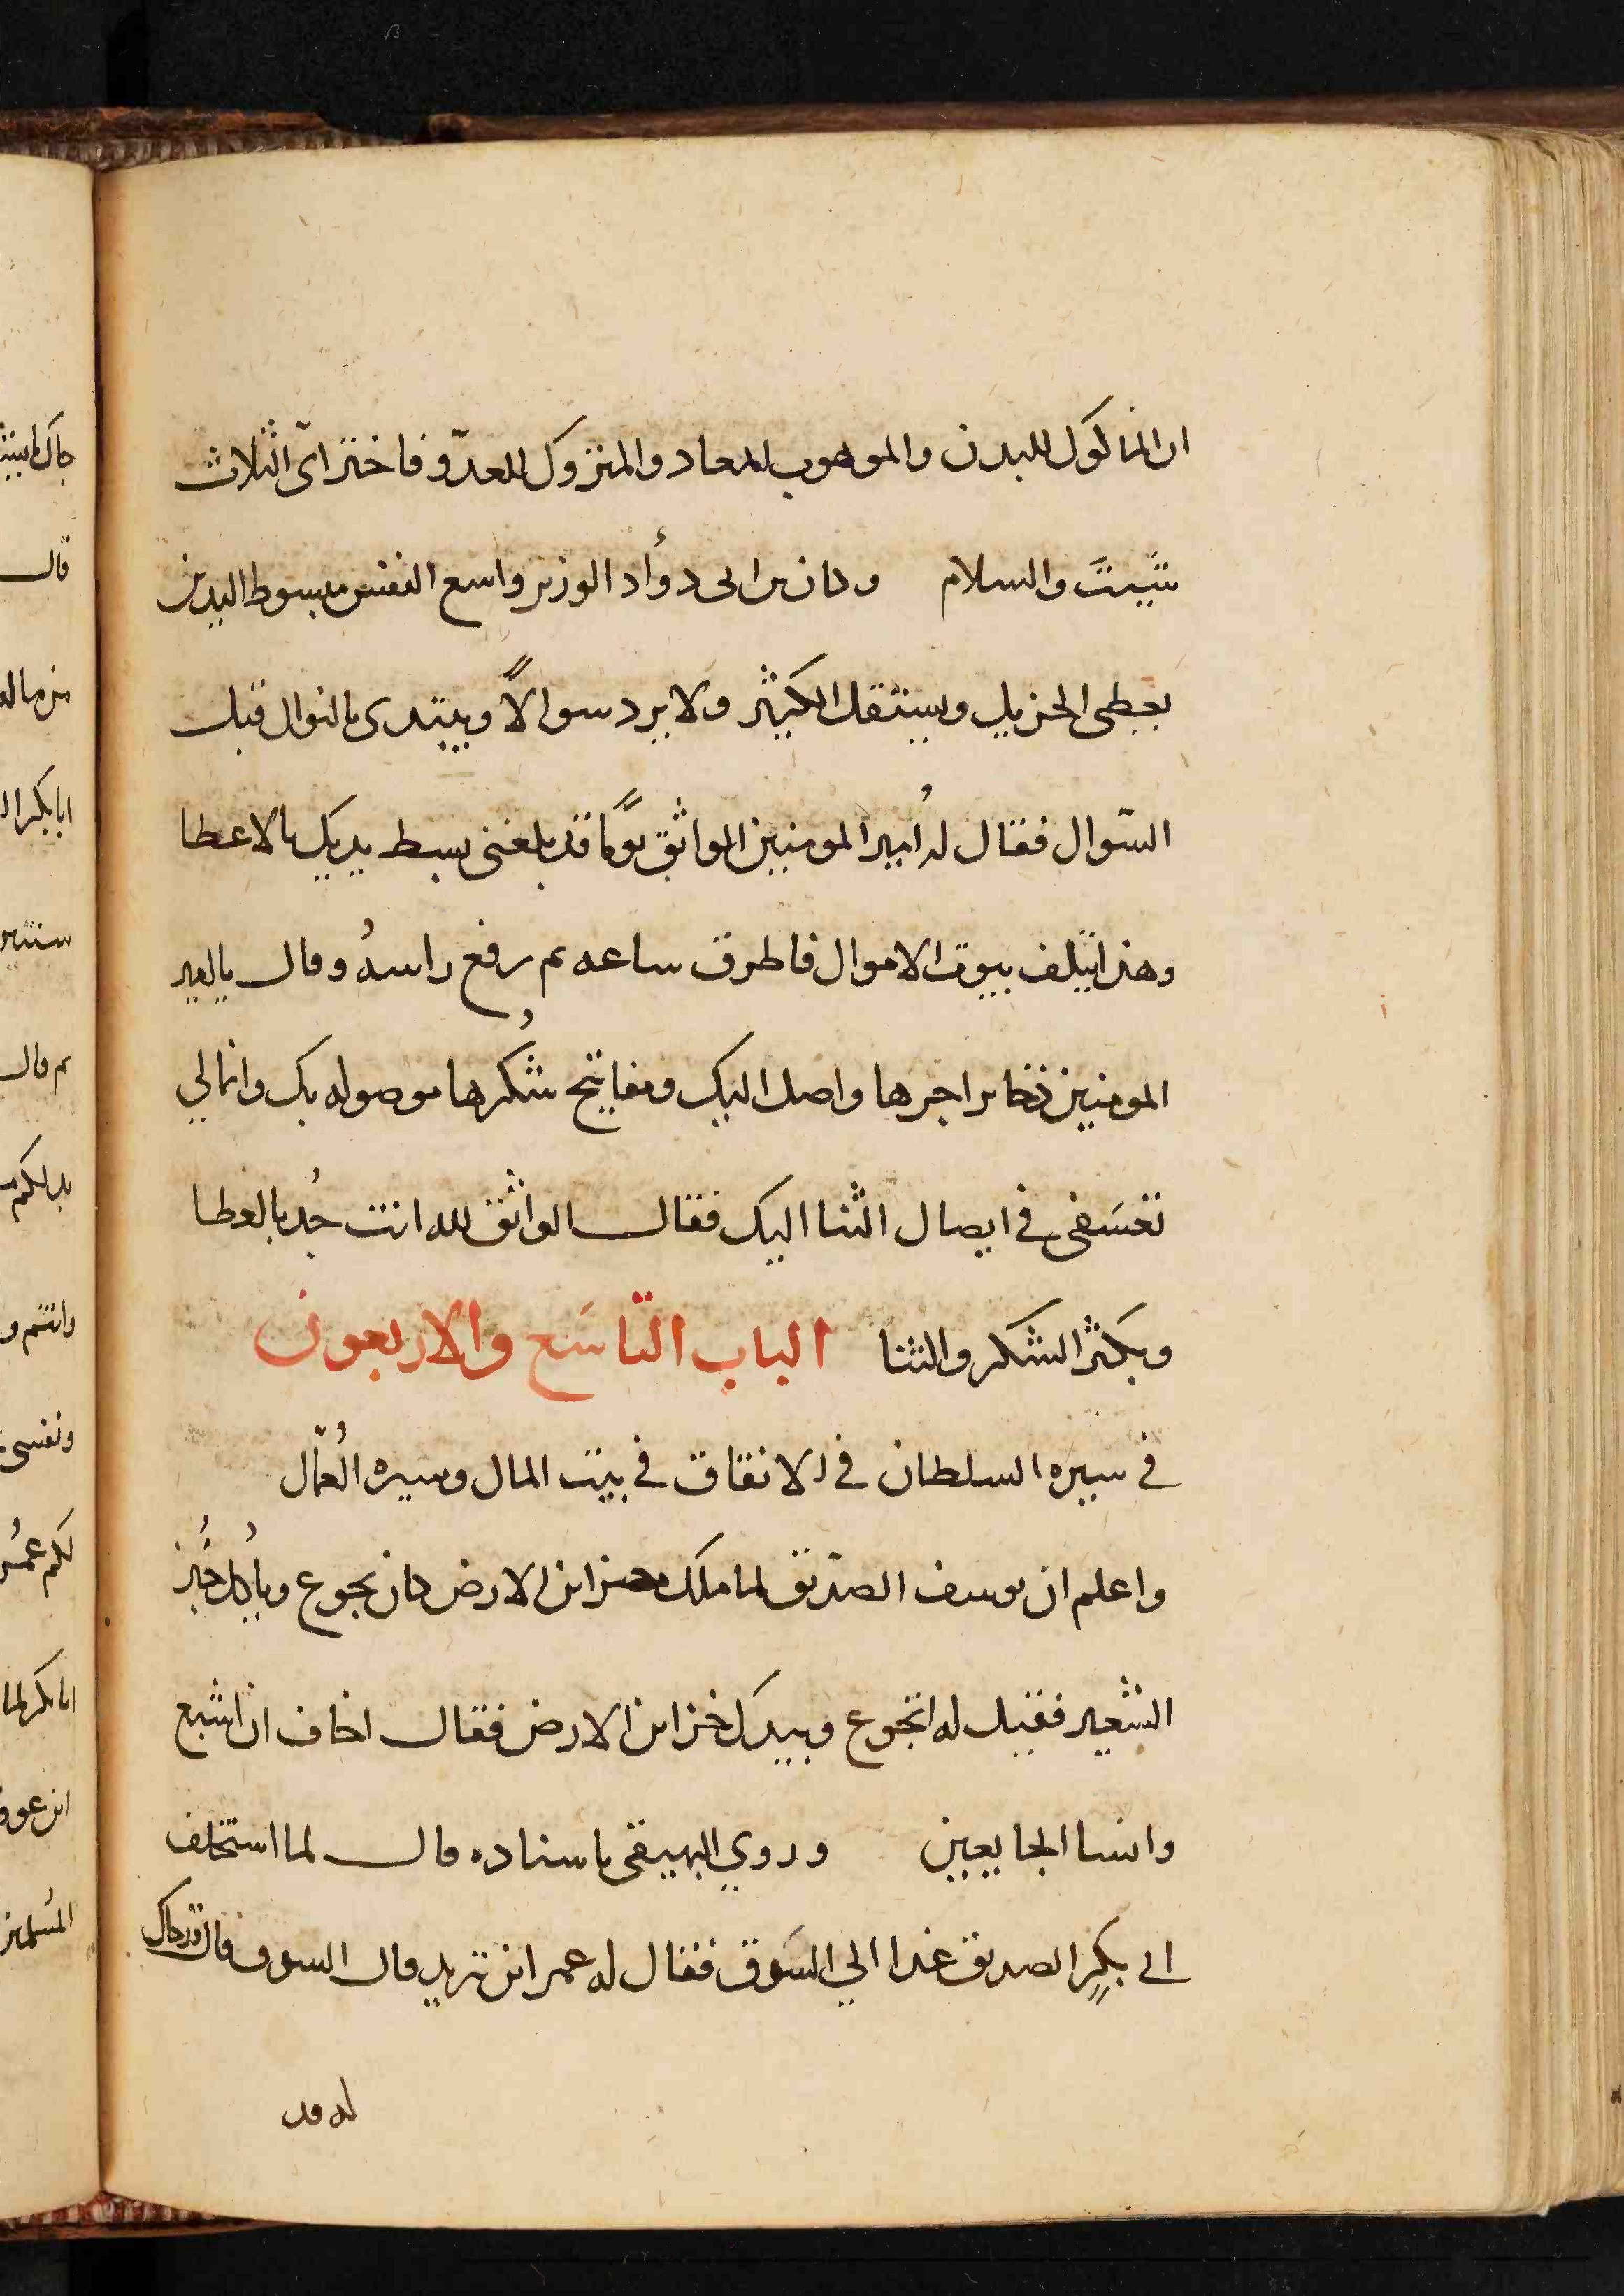 ان المأكول للبدن والموهوب للمعاد والمتروك للعدوّ فاختر ايّ الثلاث
شيتَ والسلام وكان ابن ابي دؤاد الوزير واسع النفس مبسوط اليدين
يعطي الجزيل ويستقل الكثير ولا يرد سوالاً ويبتدي بالنوال قبل
السّوال فقال له أمير المومنين الواثق يومًا قد بلغني بسط يديك بالاعطا
وهذا يتلف بيوت الاموال فاطرق ساعه ثم رفع راسهُ وقال يا امير
المومنين ذخاير اجرها واصل اليك ومفاتيح شُكرها موصوله بك وانما لي
تعسَفي في ايصال الثنا اليك فقال الواثق لله انت جُد بالعطا
وبكثر الشكر والثنا الباب التّاسَع والاربعون
في سيره السلطان في الانفاق في بيت المال وسيره العُمّال
واعلم ان يوسف الصدّيق لما ملك خزاين الارض كان يجوع وياكُل خُبز
الشعير فقيل له اتجوع وبيدك خزاين الارض فقال اخاف ان اشبع
وانسا الجايعين وروي البهيقي باسناده قال لما استخلف
ابي بكرٍ الصديق غدا الي السَوق فقال له عمر اين تريد قال السوق قال قد جاك
له قد
جاك
قال
من مال
ابا بكر
ثم قال
وانتم و
ونفسي
لكم عمُر
ابا بكر لما
ابن عوف
المُسلمين